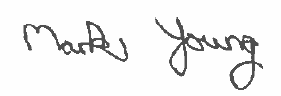 Mark Young